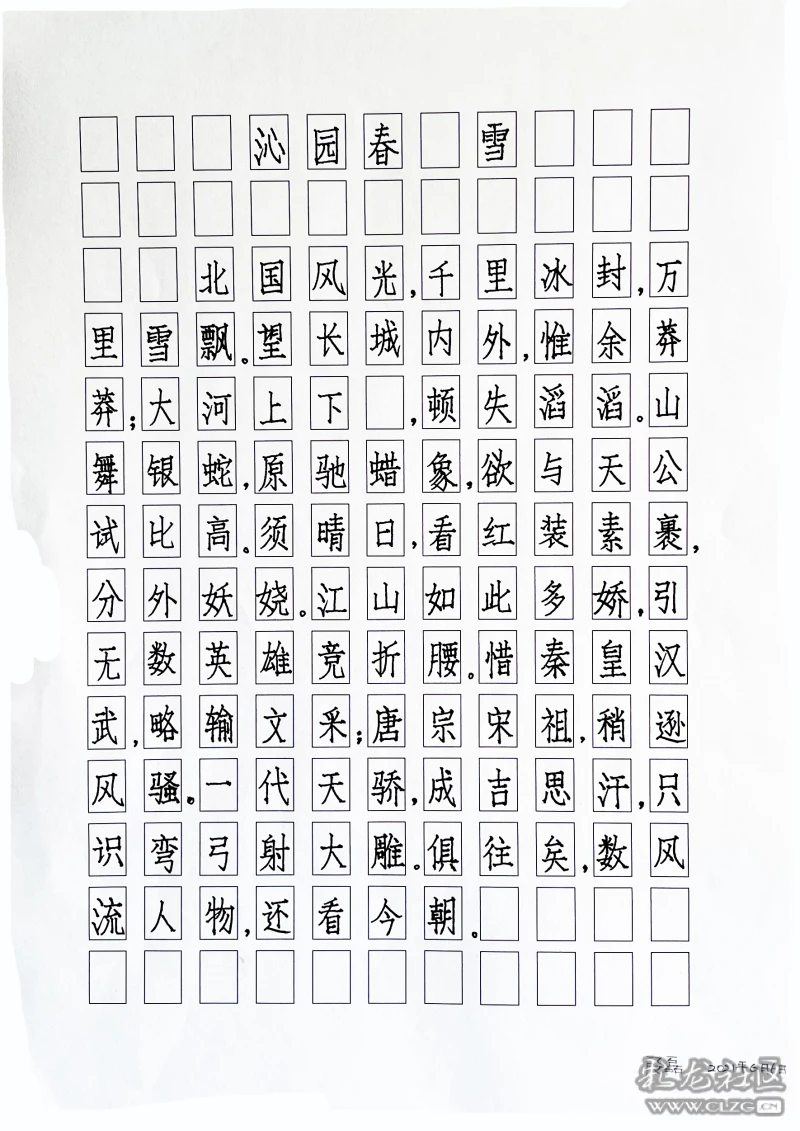 沁园春 雪
北国风光,千里冰封,万
里雪飘。望长城内外,惟余莽
莽;大河上下 ,顿失滔滔。山
舞银蛇,原驰蜡象,欲与天公
试比高。须晴日,看红装素裹,
分外妖娆。江山如此多娇,引
无数英雄竞折腰。惜秦皇汉
武,略输文采;唐宗宋祖,稍逊
风骚。一代天骄,成吉思汗,只
识弯弓射大雕。俱往矣,数风
流人物,还看今朝。
2021年6月6日
彩龙社区
WWW.CLZG.CN